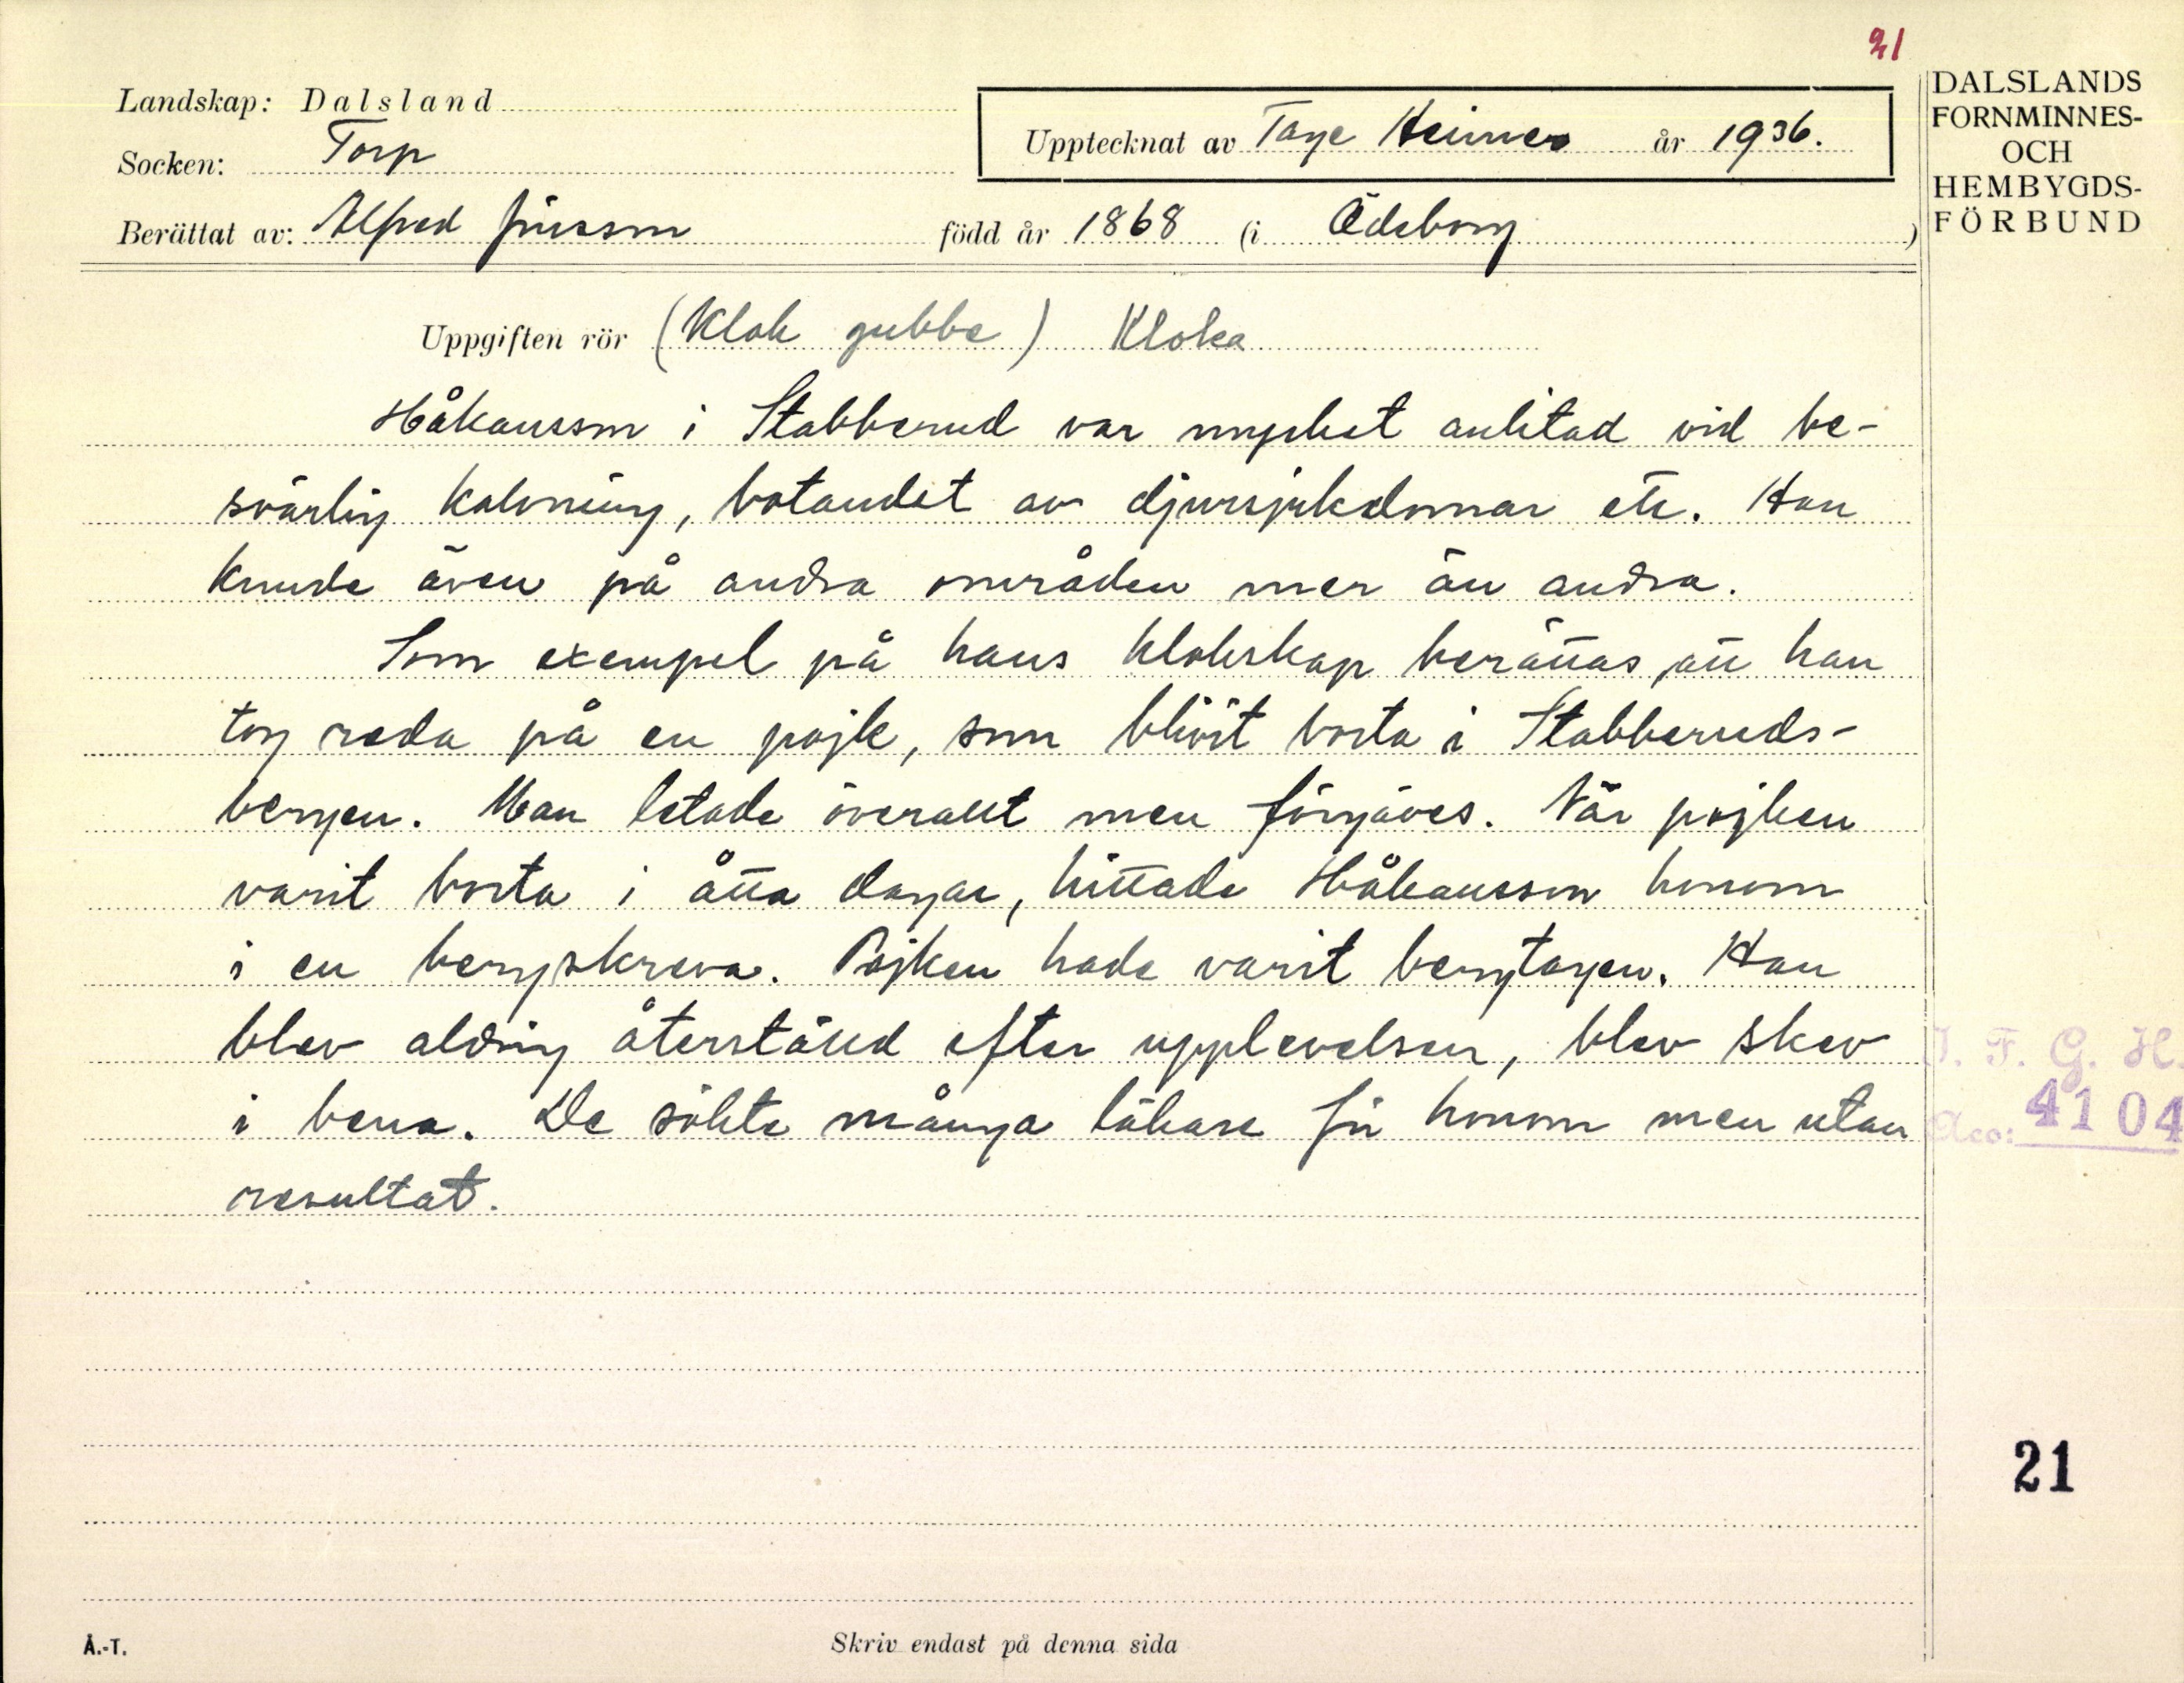 21
Landskap: Dalsland
Socken: Torp
Berättat av: Alfred Jonsson
Upptecknat av Tage Heimer år 1936.
född år 1868 (i Ödeborg)
DALSLANDS
FORNMINNES-
OCH
HEMBYGDS-
FÖRBUND
Uppgiften rör (Klok gubbe) Kloka
Håkansson i Stabberud var mycket anlitad vid be-
svärlig kalvning, botandet av djursjukdomar etc. Han
kunde även på andra områden mer än andra.
Som exempel på hans klokskap berättas, att han
tog reda på en pojk, som blivit borta i Stabberuds-
bergen. Man letade överallt men förgäves. När pojken
varit borta i åtta dagar, hittade Håkansson honom
i en bergskreva. Pojken hade varit bergtagen. Han
blev aldrig återställd efter upplevelsen, blev skev
i bena. De sökte många läkare för honom men utan
resultat.
I. F. G. H.
Acc: 4104
21
Å.-T.
Skriv endast på denna sida